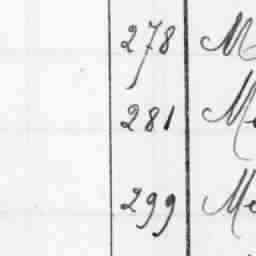 278 M
281 Me
299 Me